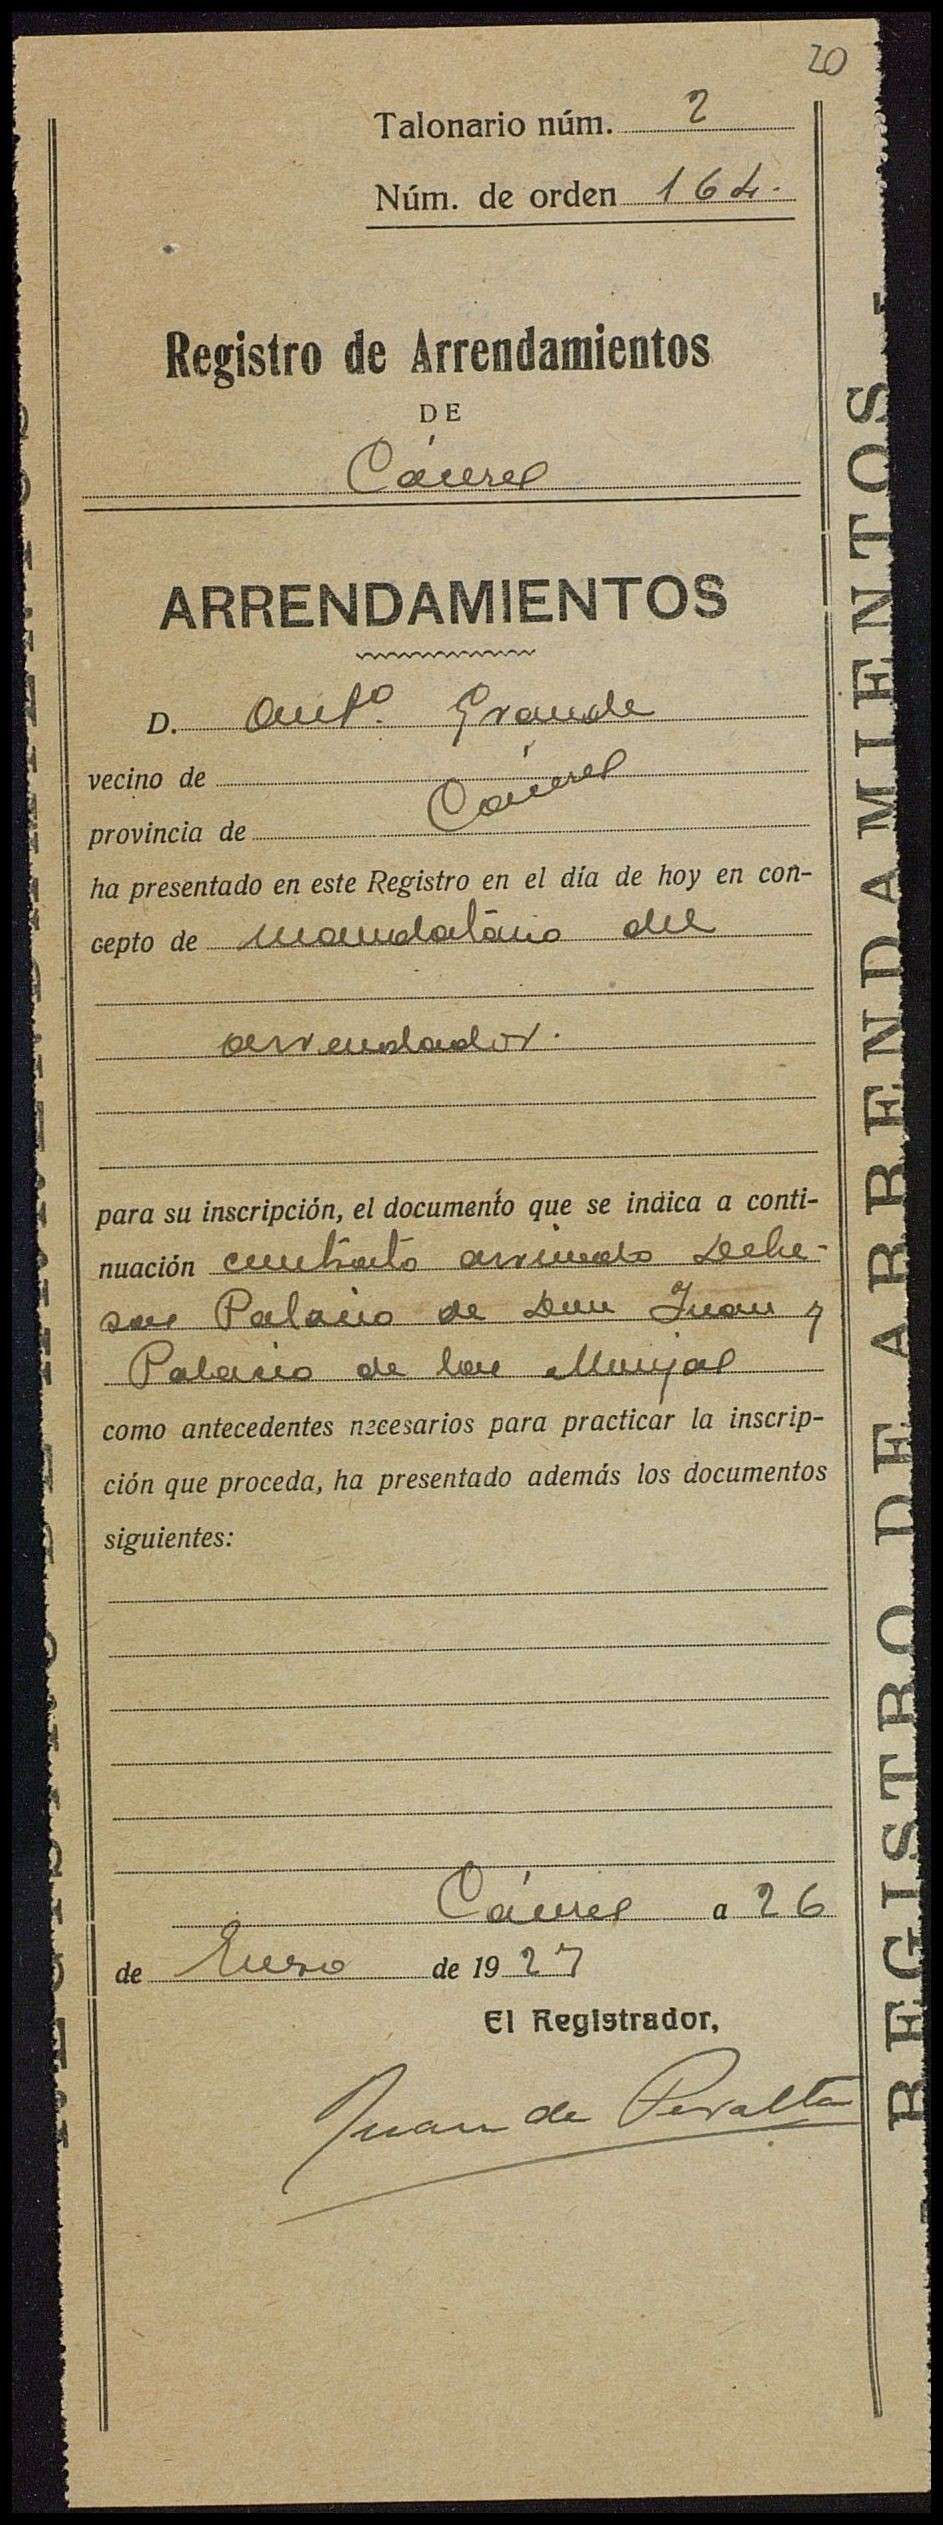 20
Talonario núm. 2
Núm. de orden 164.
Registro de Arrendamientos
DE
Cáceres
ARRENDAMIENTOS
D. Antº. Grande
vecino de
Cáceres
provincia de
ha presentado en este Registro en el día de hoy en con-
cepto de mandatário del
arrendador.
para su inscripción, el documento que se indica a conti-
nuación contrato arriendo Dehe-
sas Palacio de Don Juan y
Palacio de las Monjas
como antecedentes necesarios para practicar la inscrip-
ción que proceda, ha presentado además los documentos
siguientes:
Cáceres a 26
de Enero de 1927
El Registrador,
Juan de Peralta
REGISTRO DE ARRENDAMIENTOS